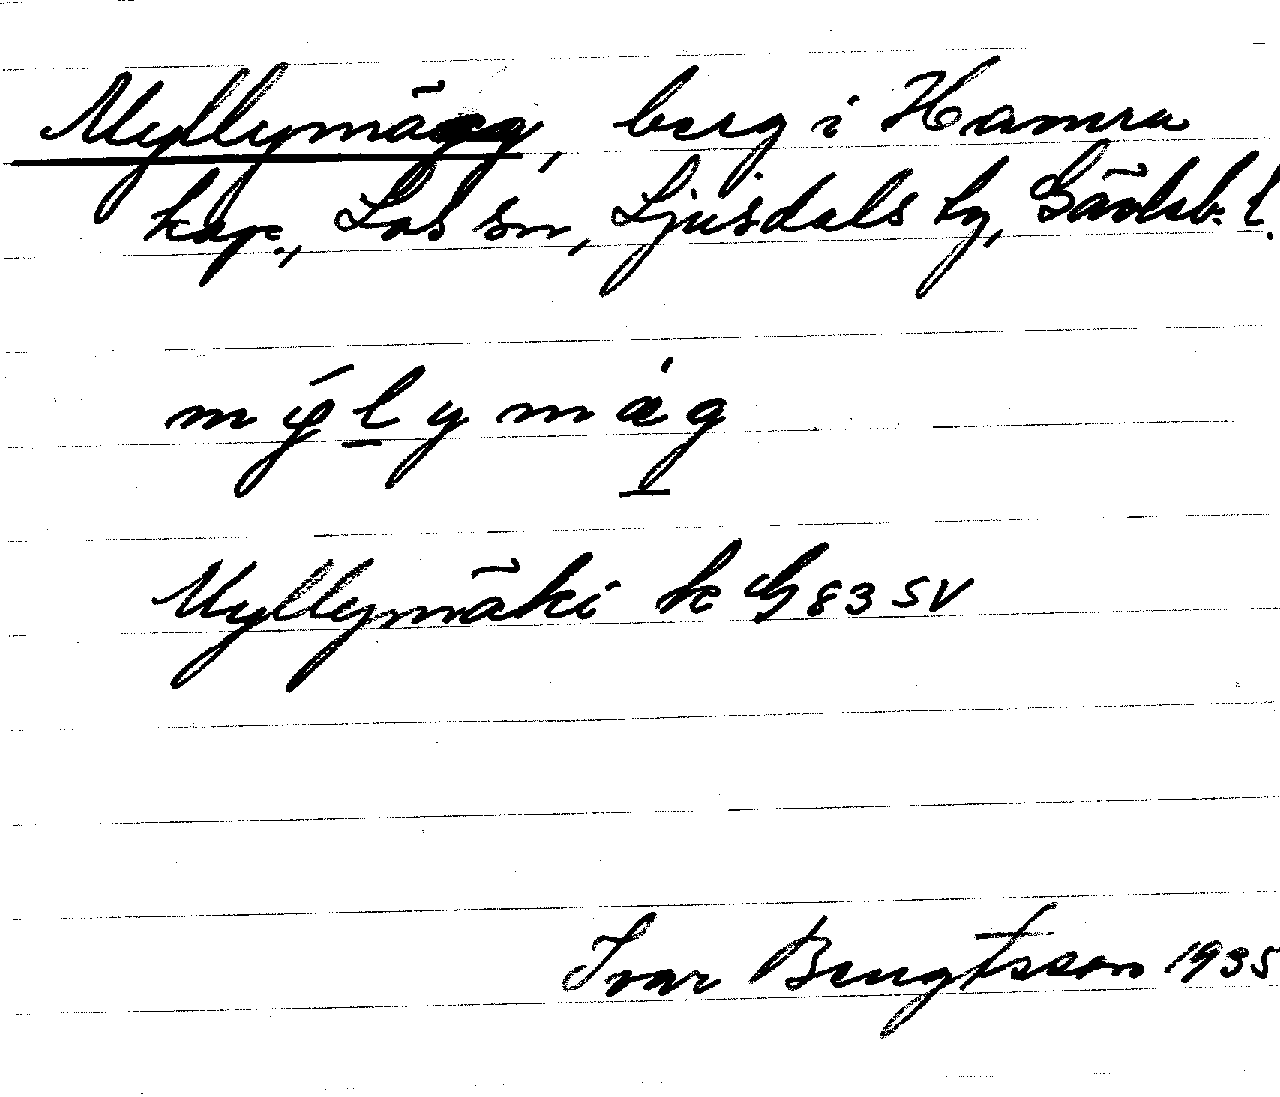 Myllymägg, berg i Hamra
kap., Los sn, Ljusdals tg, Gävleb. l.
mýlymæg
Myllymäki k G 83 SV
Ivar Bengtsson 1935